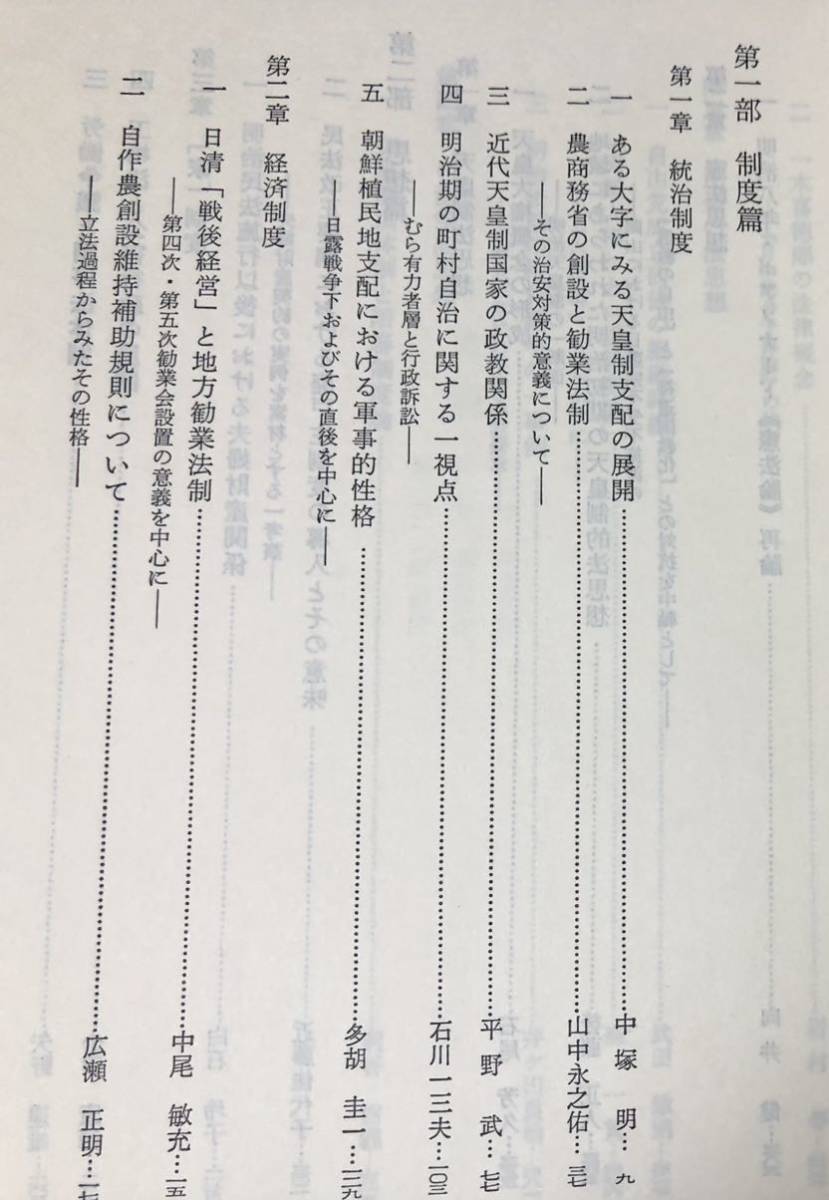 第一部 制度篇
第一章 統治制度
一 ある大字にみる天皇制支配の展開……中塚 明… 九
二 農商務省の創設と勧業法制……山中永之佑… 三七
――その治安対策的意義について――
三 近代天皇制国家の政教関係……平野 武… 七七
四 明治期の町村自治に関する一視点……石川一三夫…一〇三
――むら有力者層と行政訴訟――
五 朝鮮植民地支配における軍事的性格……多胡 圭一…一二九
――日露戦争下およびその直後を中心に――
第二章 経済制度
一 日清「戦後経営」と地方勧業法制……中尾 敏充…一五
――第四次・第五次勧業会設置の意義を中心に――
二 自作農創設維持補助規則について……広瀬 正明…一七
――立法過程からみたその性格――